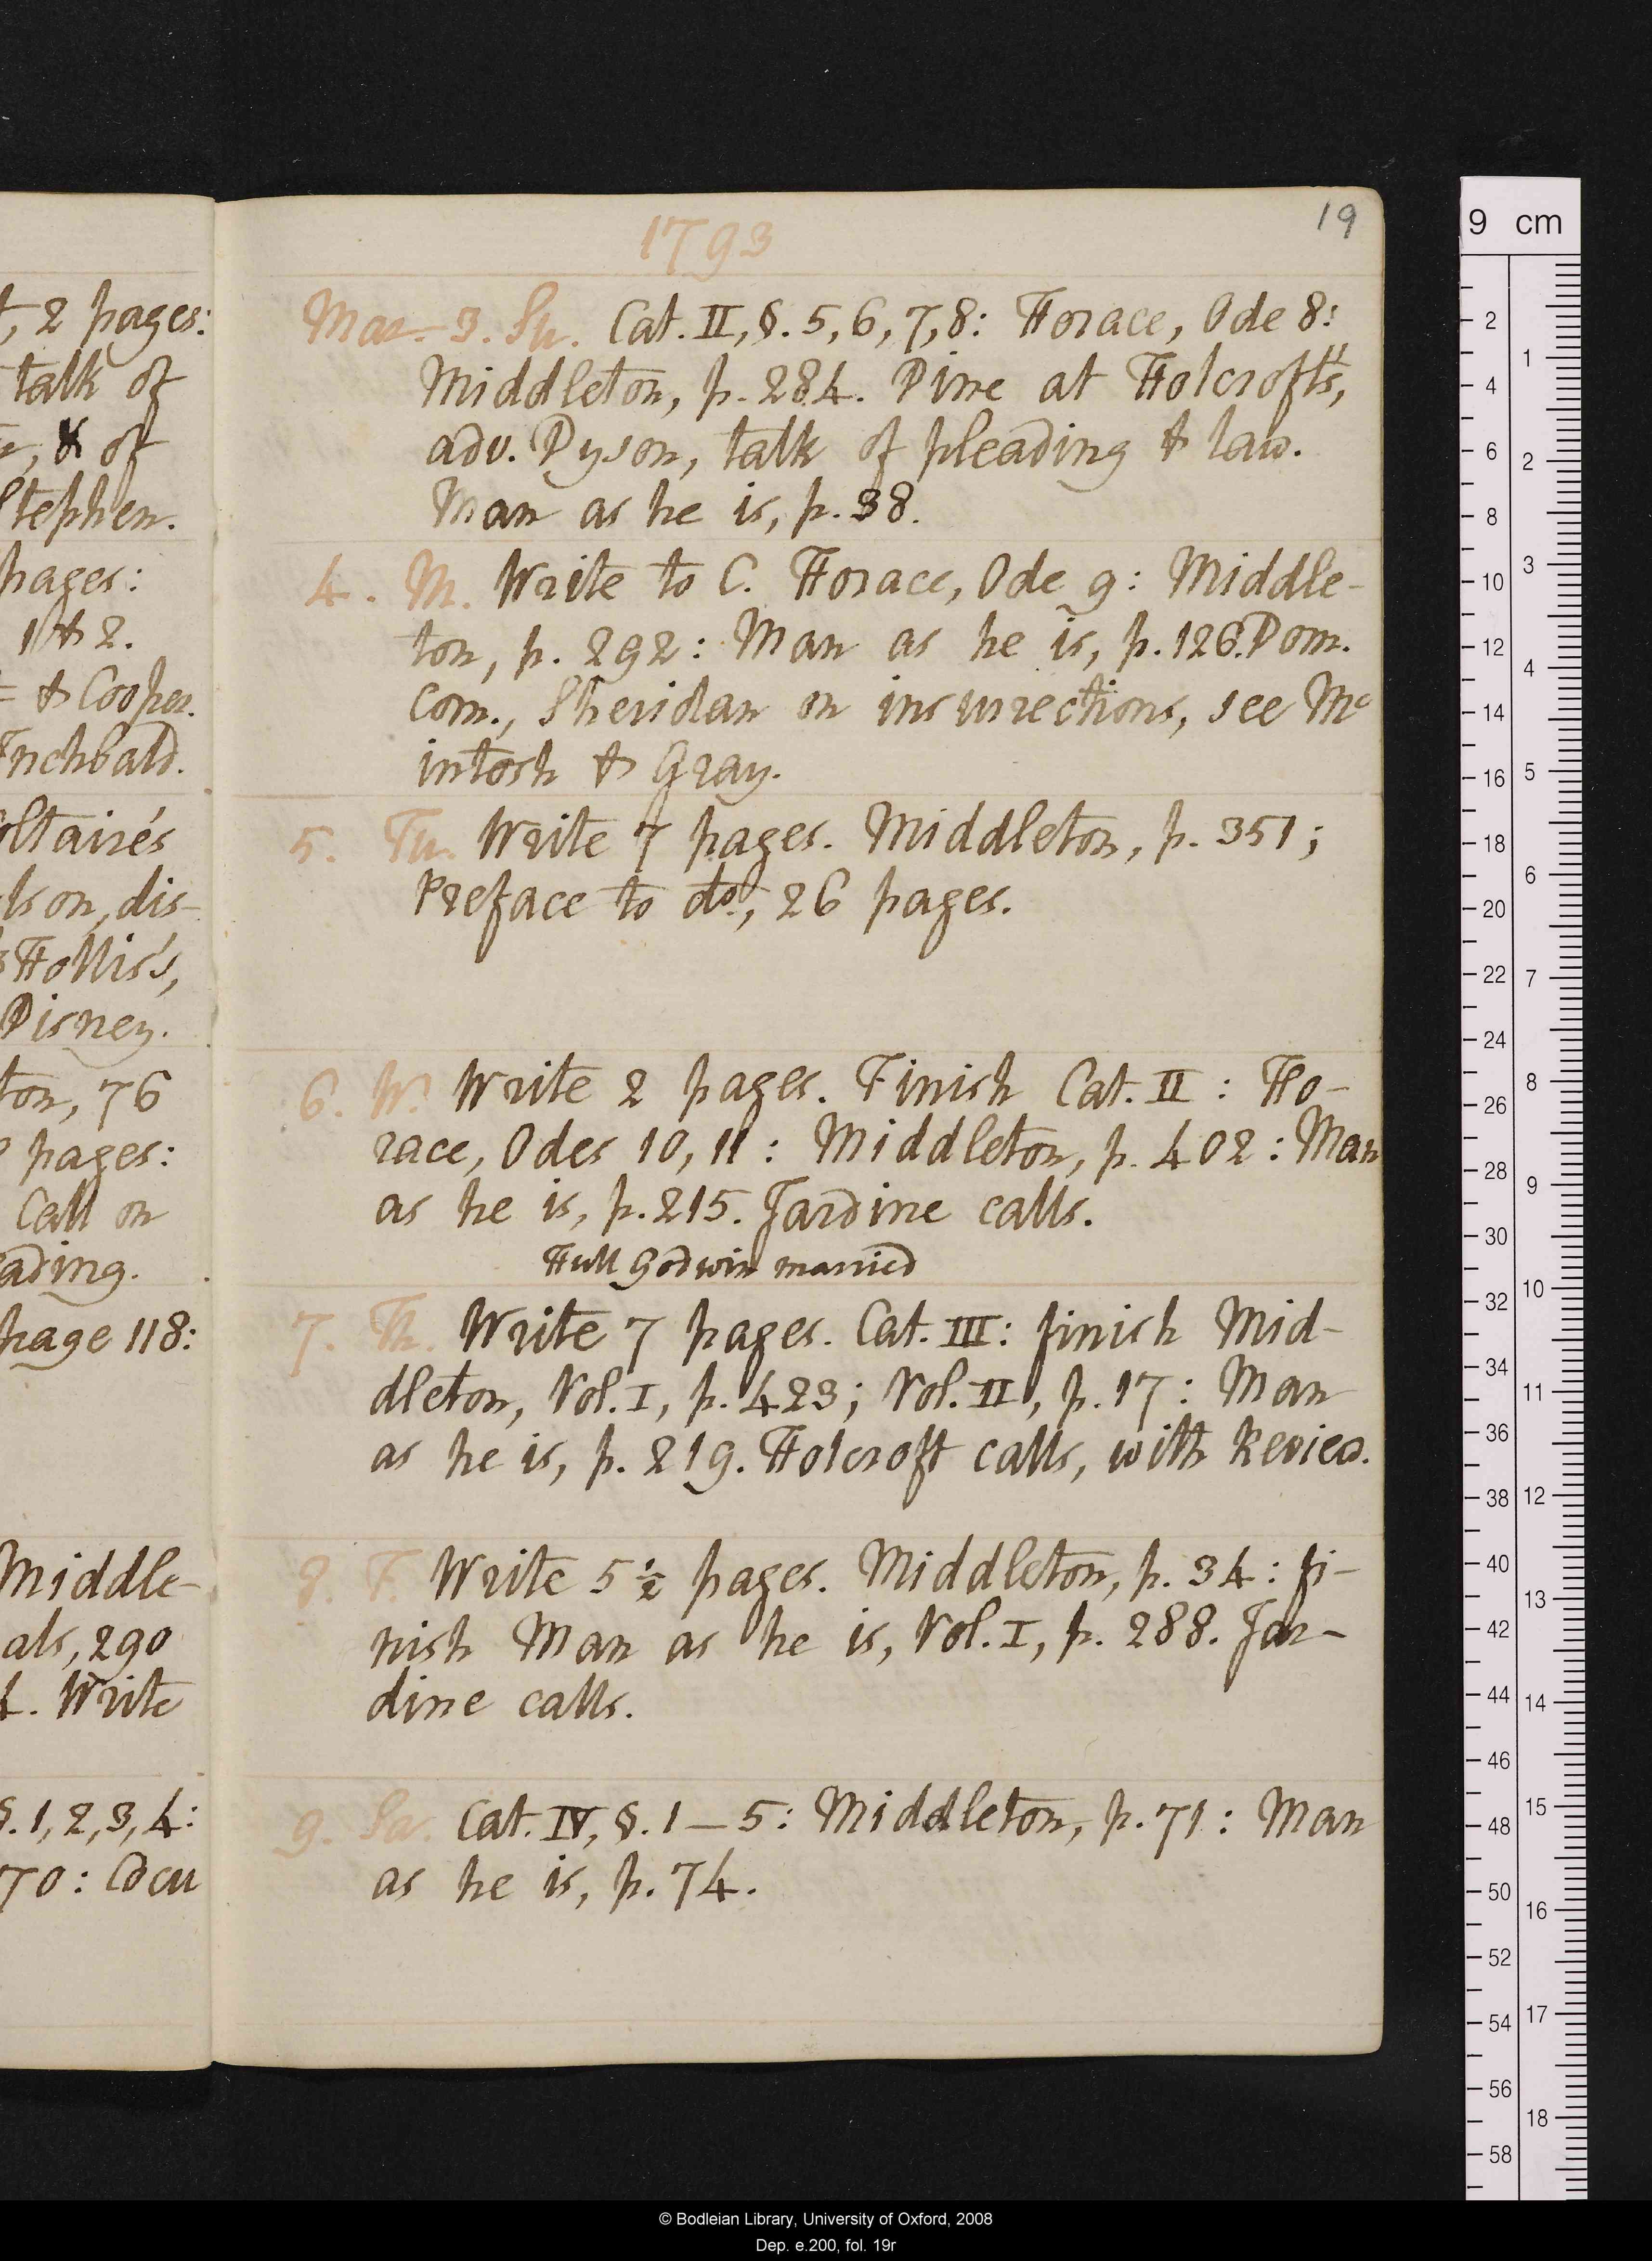 t, 2 pages:
talk of
, & of
Stephen.
pages:
1 & 2.
& Cooper.
Inchbald.
oltaire's
lson, dis-
Hollis's,
Disney.
ton, 76
pages:
Call on
ading.
page 118:
Middle-
als, 290
4. Write
§. 1, 2, 3, 4:
70: Cocu
19
1793
Mar. 3. Su. Cat. II, §. 5, 6, 7, 8: Horace, Ode 8:
Middleton, p. 284. Dine at Holcroft's,
adv. Dyson, talk of pleading & law.
Man as he is, p. 38.
4. M. Write to C. Horace, Ode 9: Middle-
ton, p. 292: Man as he is, p. 126. Dom.
Com., Sheridan on insurrections, see Mc
intosh & Gray.
5. Tu. Write 7 pages. Middleton, p. 351;
Preface to do., 26 pages.
6. W. Write 2 pages. Finish Cat. II: Ho-
race, Odes 10, 11: Middleton, p. 402: Man
as he is, p. 215. Jardine calls.
Hull Godwin married
7. Th. Write 7 pages. Cat. III: finish Mid-
dleton, Vol. I, p. 423; Vol. II, p. 17: Man
as he is, p. 219. Holcroft calls, with Review.
8. F. Write 5 ½ pages. Middleton, p. 34: fi-
nish Man as he is, Vol. I, p. 288. Jar-
dine calls.
9. Sa. Cat. IV, §. 1 — 5: Middleton, p. 71: Man
as he is, p. 74.
9 cm
2
4
6
8
10
12
14
16
18
20
22
24
26
28
30
32
34
36
38
40
42
44
46
48
50
52
54
56
58
1
2
3
4
5
6
7
8
9
10
11
12
13
14
15
16
17
18
© Bodleian Library, University of Oxford, 2008
Dep. e.200, fol. 19r